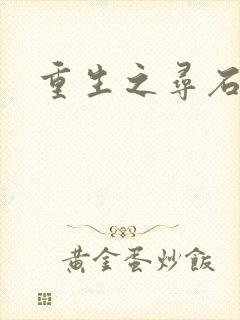 重生之尋石
黃金蛋炒飯